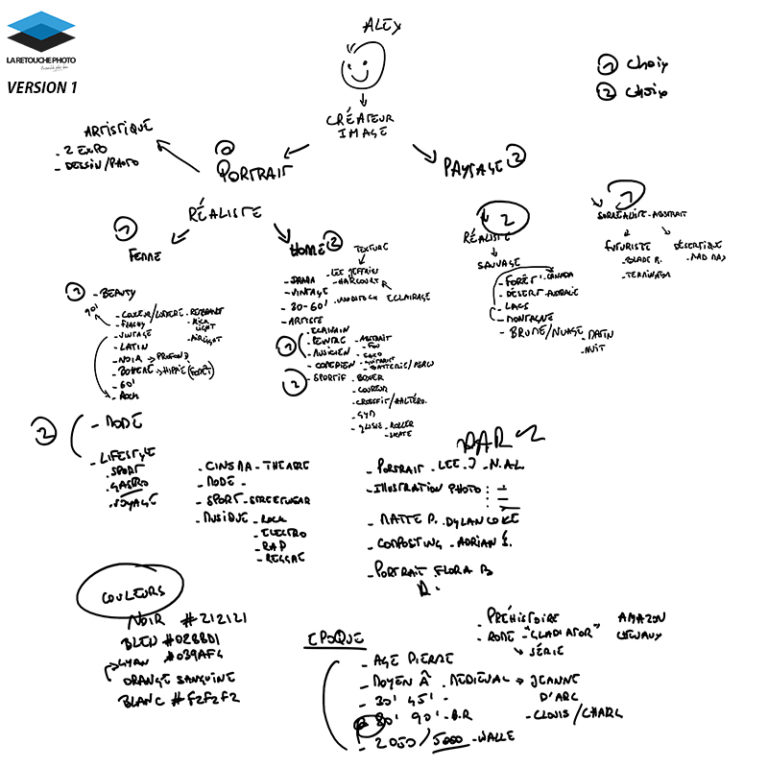 LA RETOUCHE PHOTO
VERSION 1
ALEX
① choix
② choix
CRÉATEUR
IMAGE
ARTISTIQUE
- 2 EXPO
- DESSIN/PHOTO
① PORTRAIT
PAYSAGE ②
RÉALISTE
① FEMME
HOMME ②
2
RÉALISTE
SAUVAGE
- FORÊT CANADA
- DÉSERT - AUSTRALIE
- LACS
- MONTAGNE
- BRUME/NUAGE - MATIN
- NUIT
1
SURRÉALISTE - ABSTRAIT
FUTURISTE
- BLADE R.
- TERMINATOR
DÉSERTIQUE
- MAD MAX
① - BEAUTY
90'
- COULEUR/LUMIÈRE - REMBRANT
- HIGH
LIGHT
- VINTAGE
- LATIN
- NOIR → PROFOND
- BOHÈME → HIPPIE (FORÊT)
- 60'
- ROCK
② - MODE
- LIFESTYLE
- SPORT
- GASTRO
- VOYAGE
TEXTURE
- LEE JEFFRIES
- HARCOURT
ECLAIRAGE
- VINTAGE
- 30-60'
- ARTISTE
①
- ECRIVAIN
- PEINTRE - ABSTRAIT
- MUSICIEN
- COMÉDIEN
- GUITARE
- BATTERIE/PERCU
② - SPORTIF - BOXER
- COUREUR
- CROSSFIT/HALTÉRO.
- GYM
- GLISSE - ROLLER
- SKATE
- CINEMA - THEATRE
- MODE -
- SPORT - STREETWEAR
- MUSIQUE - ROCK
- ELECTRO
- RAP
- REGGAE
- PORTRAIT - LEE.J - N.A.L
- ILLUSTRATION PHOTO :
- MATTE P. - DYLAN COLE
- COMPOSITING - ADRIAN S.
- PORTRAIT FLORA B
COULEURS
NOIR #212121
BLEU #0288D1
CYAN #039AF4
ORANGE SANGUINE
BLANC #F2F2F2
EPOQUE
- PRÉHISTOIRE
- ROME - "GLADIATOR"
SÉRIE
AMAZON
CHEVAUX
- AGE PIERRE
- MOYEN Â - MEDIEVAL → JEANNE
D'ARC
- CLOVIS / CHARL
- 30' 45' -
80' 90' - B.R
- 2050 / 5000 - WALLE